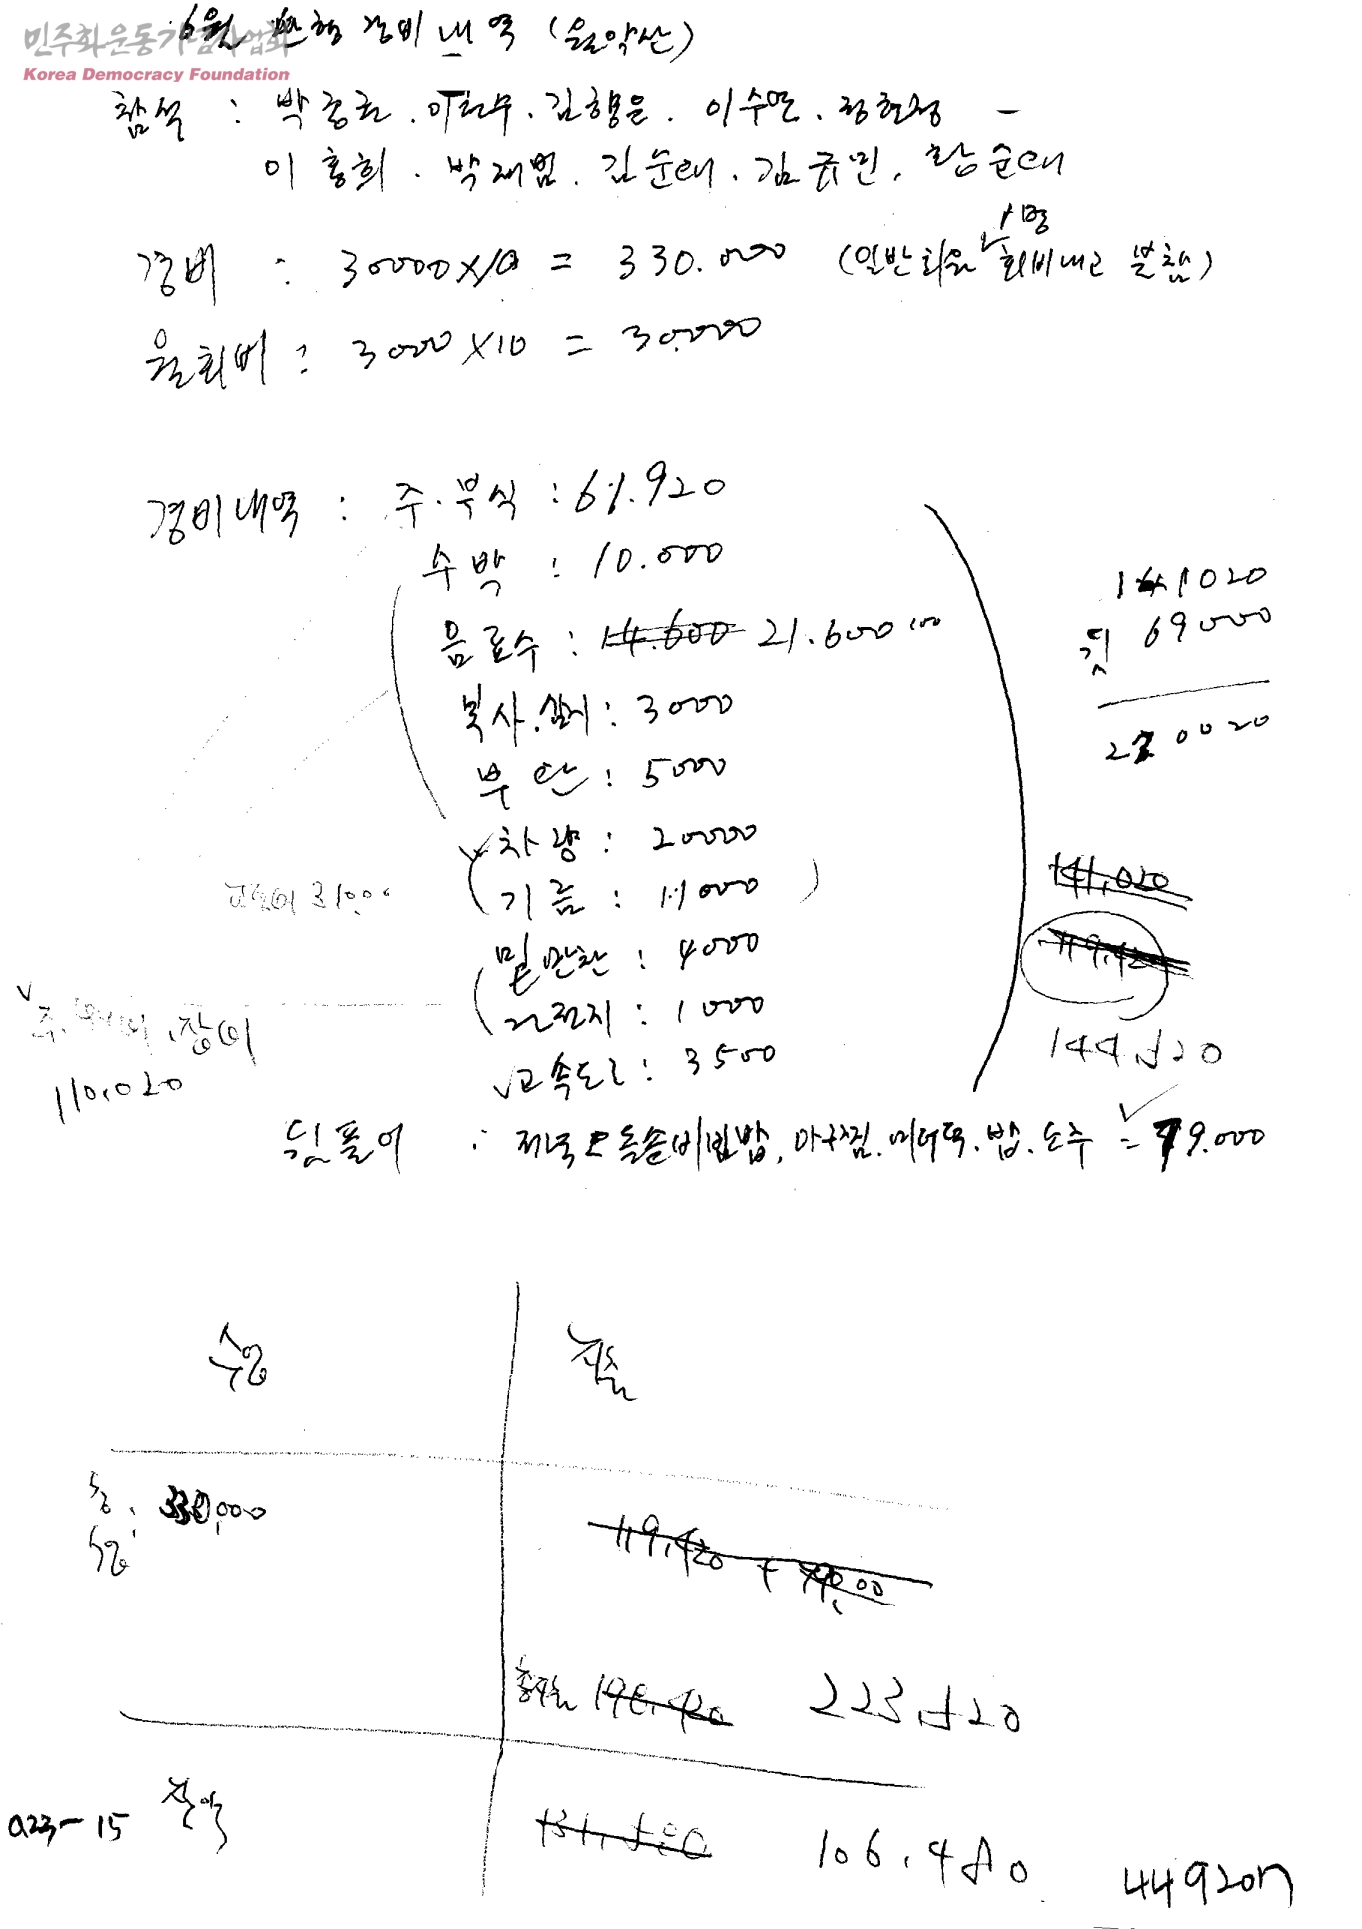 민주화운동기념사업회
Korea Democracy Foundation
6월 산행 경비 내역 (월악산)
참석 : 박 . 이 . 김형은 . 이수연 . 정현정 -
이홍희 . 박재범 . 김순태 . 김규민 . 황순태
1명
경비 : 30000 X 10 = 330.000 (일반회원 회비내고 불참)
월회비 : 3000 X 10 = 30.000
경비내역 : 주.부식 : 61.920
수박 : 10.000
음료수 : 14.600 21.600
복사. : 3000
부탄 : 5000
차량 : 20000
기름 : 11000
밑반찬 : 4000
건전지 : 1000
고속도로 : 3500
141020
뒷 69000
210020
141,020
119,420
144,520
31000
주. . 장비
110,020
뒷풀이 : 제육 돌솥비빔밥, 아구찜. . 밥. 소주 = 79.000
수입 지출
총수입 330,000
119,420 +
총지출 198,420 223,520
잔액 131,580 106,480
a23-15
44920